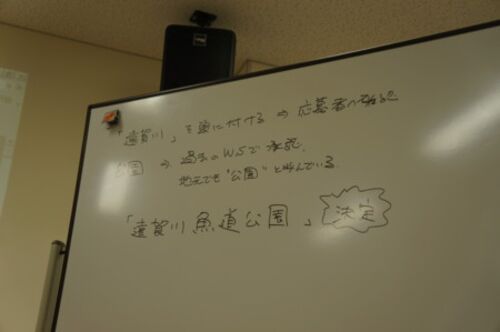 「遠賀川」を頭に付ける ⇒ 応募者へ確認
公園 ⇒ 過去のWSで承認.
地元でも"公園"と呼んでいる.
「遠賀川魚道公園」 決定